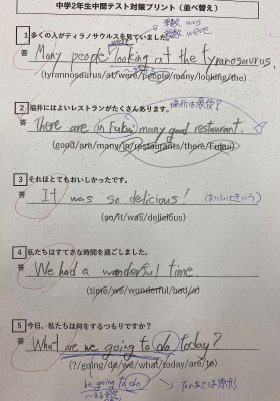 中学2年生中間テスト対策プリント（並べ替え）
単数 was
複数 were
1 多くの人がティラノサウルスを見ていました。
were
答 Many people looking at the tyranosaurus.
(tyrannosaurus/at/were/people/many/looking/the)
場所は最後?
2 福井にはよいレストランがたくさんあります。
答 There are in Fukui many good restaurant.
(good/are/many/in/restaurants/there/Fukui)
3 それはとてもおいしかったです。
答 It was so delicious!
(so/it/was/delicious)
4 私たちはすてきな時間を過ごしました。
答 We had a wonderful time.
(time/we/wonderful/had/a)
5 今日、私たちは何をするつもりですか？
答 What are we going to do today?
(?/going/do/we/what/today/are/to)
be going to do
toのあとは原形